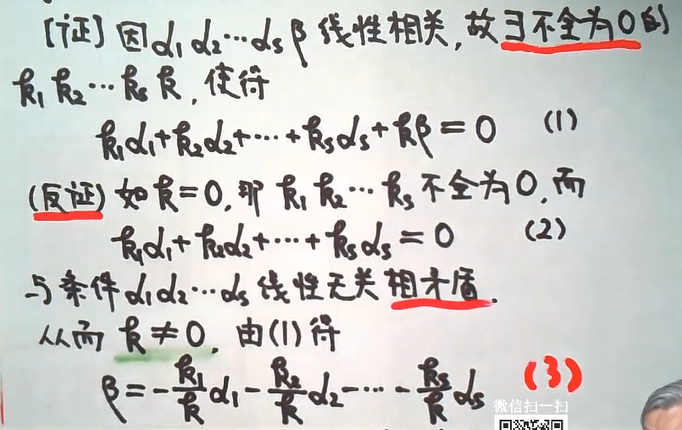 [证] 因α₁α₂…αₛβ线性相关,故∃不全为0的
k₁k₂…kₛk,使得
k₁α₁+k₂α₂+…+kₛαₛ+kβ=0 (1)
(反证) 如k=0,那k₁k₂…kₛ不全为0,而
k₁α₁+k₂α₂+…+kₛαₛ=0 (2)
与条件α₁α₂…αₛ线性无关相矛盾.
从而k≠0,由(1)得
β=-k₁/k α₁-k₂/k α₂-…-kₛ/k αₛ (3)
微信扫一扫